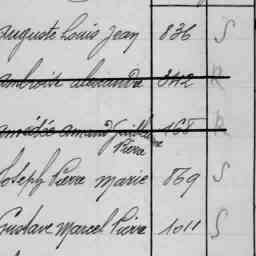 Auguste Louis Jean 836 S
Ambroise Alexandre 342 R
Amédée Amand Guillaume 168 R
Pierre
Joseph Pierre Marie 869 S
Gustave Marcel Pierre 1011 S